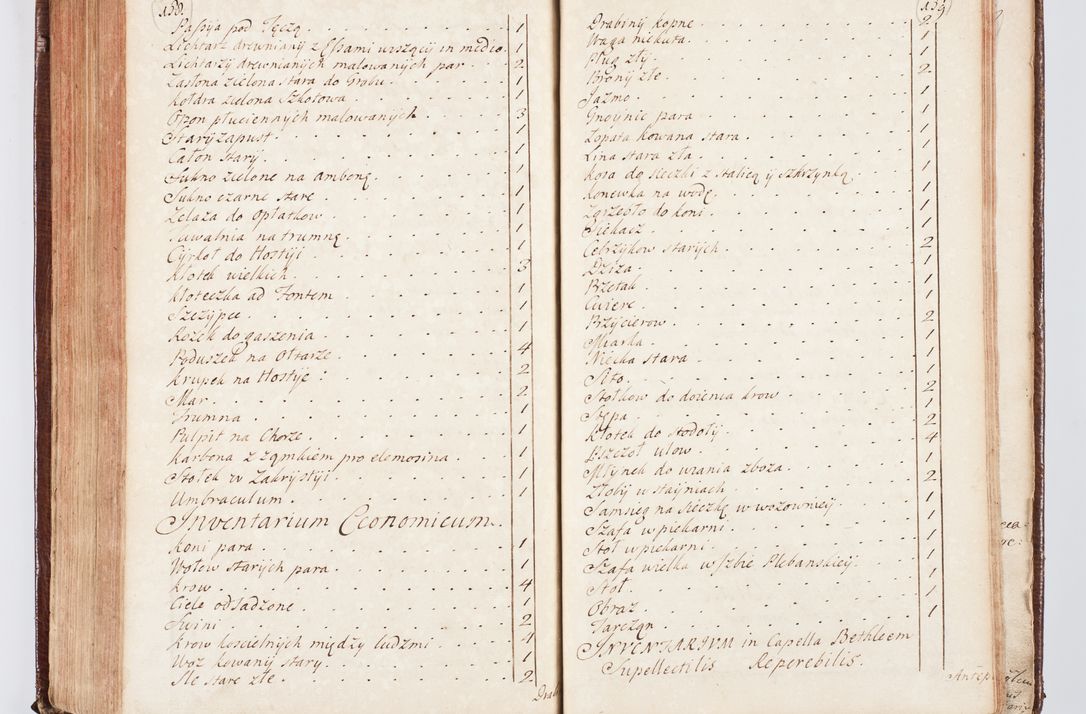 158.
Passya pod Tęczą . 1
Lichtarz drewniany z Ossami wiszący in medio . 1
Lichtarzy drewnianych malowanych par . 2
Zasłona zielona stara do Grobu . 1
Kołdra zielona Szkotowa . 1
Opon płuciennych malowanych . 3
Stary zapust . 1
Całon stary . 1
Sukno zielone na ambonę . 1
Sukno czarne stare . 1
Zelaza do Opłatkow . 1
Tuwalnia na trumnę . 1
Cyrkoł do Hostyi . 1
Kłotek wielkich . 3
Kłoteczka ad Fontem . 1
Szczypce . 1
Rożek do gaszenia . 1
Poduszek na Ołtarze . 4
Krupek na Hostye : 2
Mar . 2
Trumna . 1
Pulpit na Chorze . 1
Karbona z zamkiem pro elemosina . 1
Stołek w Zakrystyi . 1
Umbraculum . 1
Inventarium Œconomicum.
Koni para . 1
Wołow starych para . 1
Krow . 4
Ciele odsadzone . 1
Swini . 2
Krow koscielnych między ludzmi . 4
Woz kowany stary . 1
Sle stare złe . 2
Drab
159
Drabiny kopne . 2
Waga niekuta . 1
Pług zły . 1
Brony złe . 2
Jazmo . 1
Gnoynic para . 1
Łopata kowana stara . 1
Lina stara zła . 1
Kosa do sieczki z stalicą y Szkrzynką . 1
Konewka na wodę . 1
Zgrzebło do koni . 1
Siekacz . 1
Cebrzykow starych . 2
Dziza . 1
Brzetak . 1
Cwierc . 1
Przycierow . 2
Miarka . 1
Niecka stara . 1
Sito . 1
Stołkow do doienia krow . 2
Stępa . 1
Kłotek do stodoły . 2
Pszczoł ulow . 4
Młynek do wiania zboza . 1
Złoby w stayniach . 2
Samsieg na sieczkę w wozowniey . 1
Szafa w piekarni . 1
Stoł w piekarni . 1
Szafa wielka w Izbie Plebanskiey . 1
Stoł . 1
Obraz . 1
Tarczan . 1
INVENTARIUM in Capella Bethleem
Supellectilis Reperebilis.
Antep